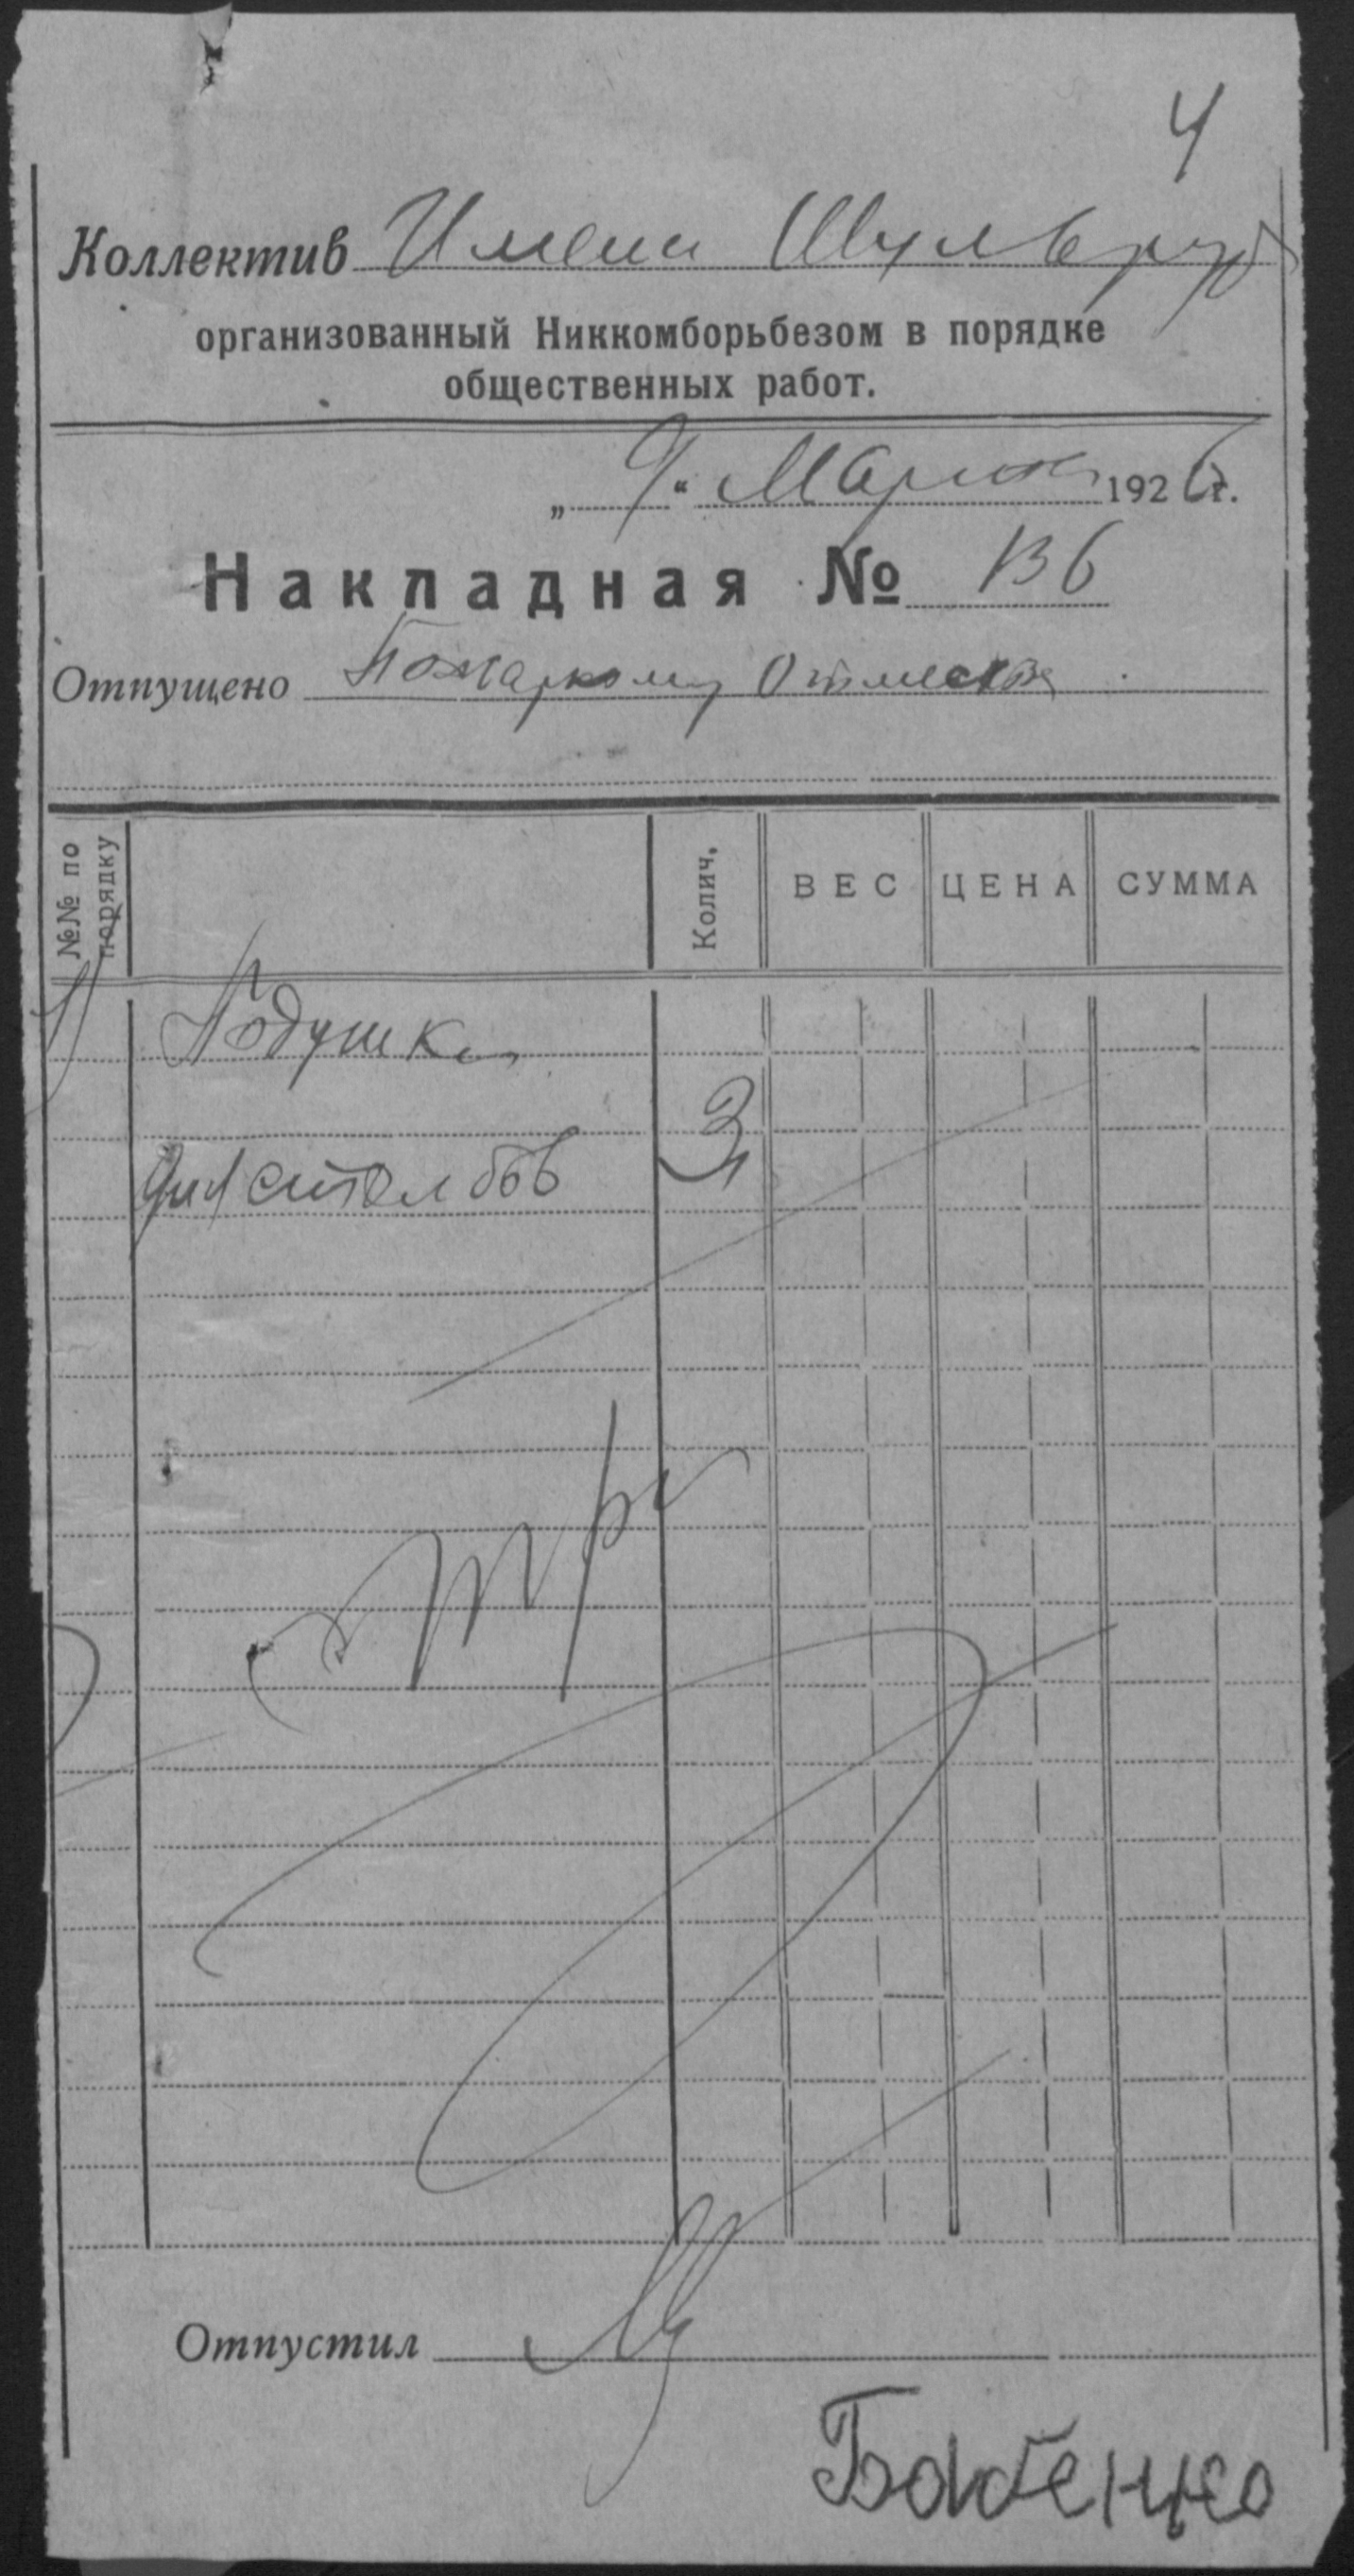 4
Коллектив Имени
организованный Никкомборьбезом в порядке
общественных работ.
„ 9 “ Марта 1926 г.
Накладная № 136
Отпущено Пожаркому
№№ по порядку
Колич.
ВЕС
ЦЕНА
СУММА
1) Подушки
для столбов 3
три
Отпустил